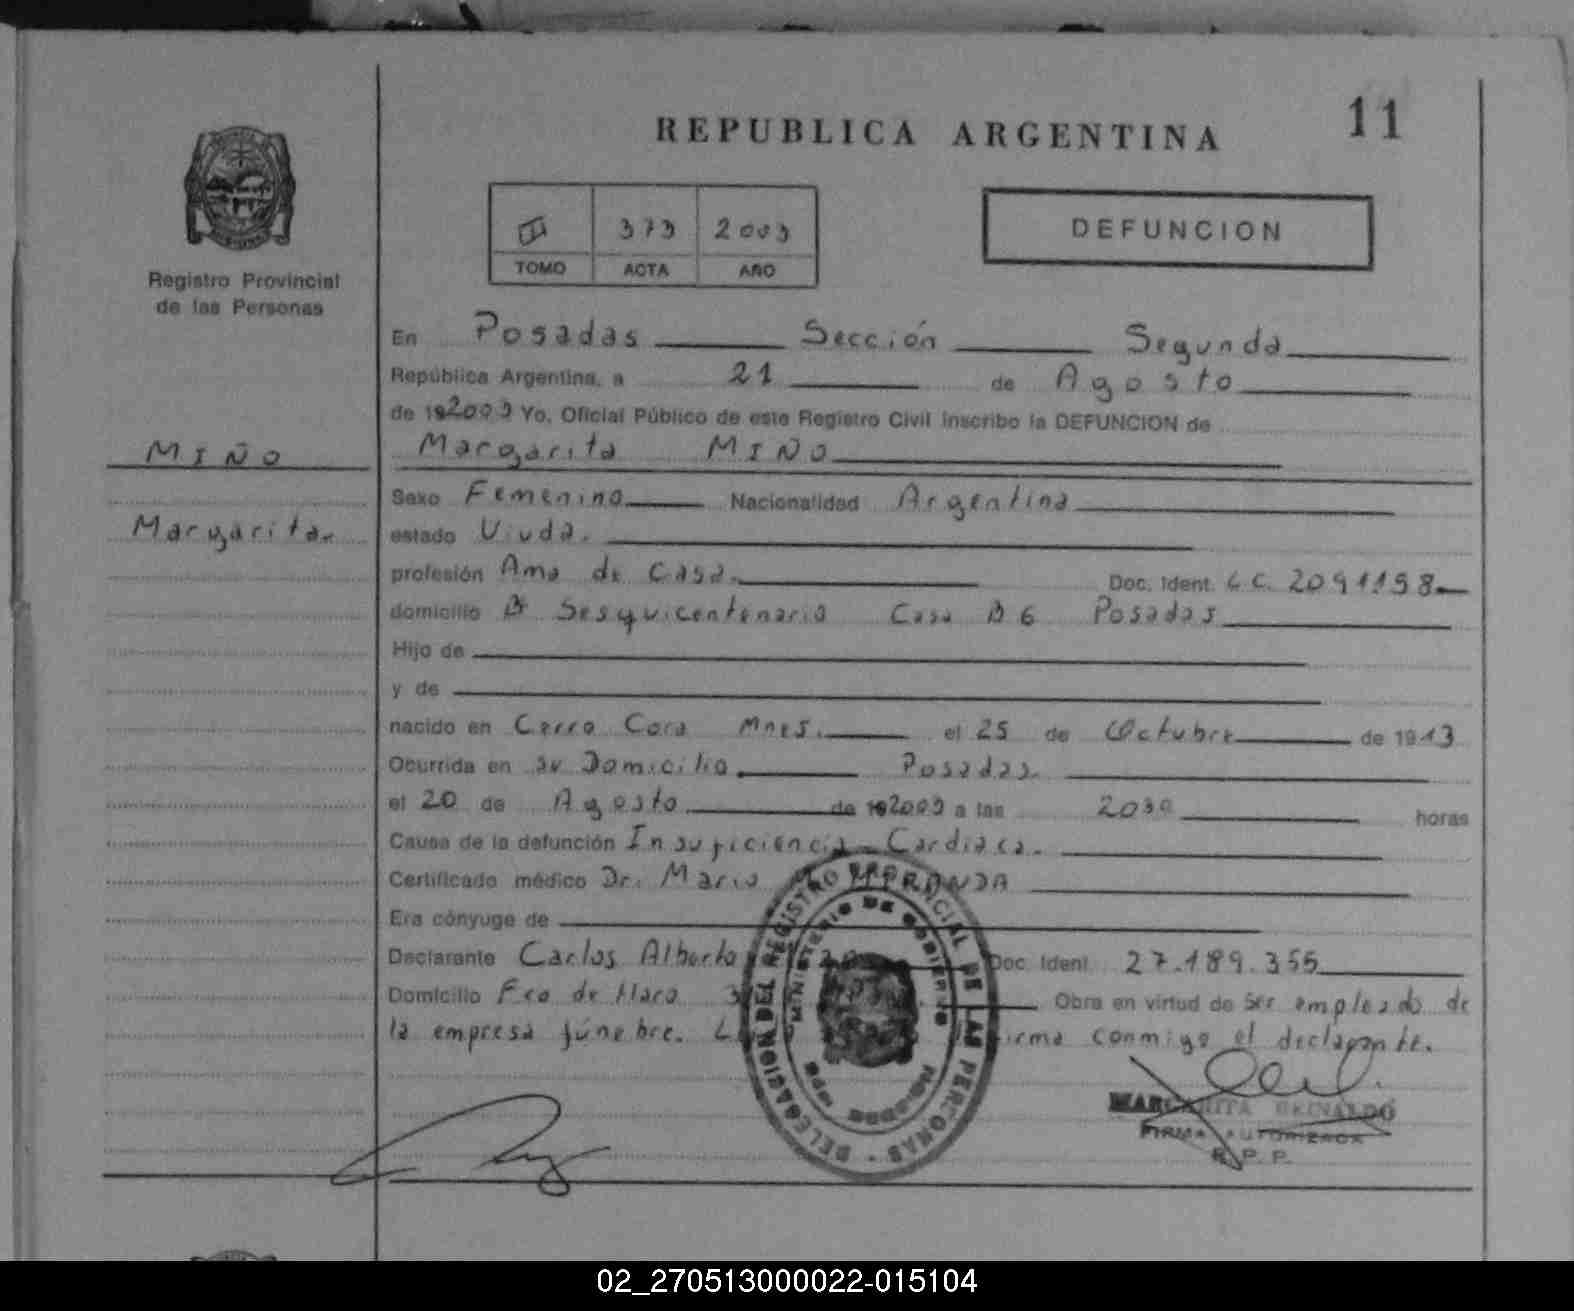 11
REPUBLICA ARGENTINA
373 2003
TOMO ACTA AÑO
DEFUNCION
Registro Provincial
de las Personas
En Posadas Sección Segunda
República Argentina, a 21 de Agosto
de 19 2003 Yo, Oficial Público de este Registro Civil inscribo la DEFUNCION de
MIÑO
Margarita MIÑO
Sexo Femenino Nacionalidad Argentina
Margarita.
estado Viuda.
profesión Ama de Casa. Doc. Ident. L.C. 2091198
domicilio Bº Sesquicentenario Casa B6 Posadas
Hijo de
y de
nacido en Cerro Cora Mnes. el 25 de Octubre de 1913
Ocurrida en su Domicilio Posadas.
el 20 de Agosto de 19 2003 a las 2030 horas
Causa de la defunción Insuficiencia Cardiaca.
Certificado médico Dr. Mario MIRANDA
Era cónyuge de
Declarante Carlos Alberto Doc. Ident. 27.189.355
Domicilio Fco de Haro Obra en virtud de Ser empleado de
la empresa fúnebre. firma conmigo el declarante.
DELEGACION DEL REGISTRO PROVINCIAL DE LAS PERSONAS
MINISTERIO DE GOBIERNO
MARGARITA REINALDO
FIRMA AUTORIZADA
R. P. P.
02_270513000022-015104